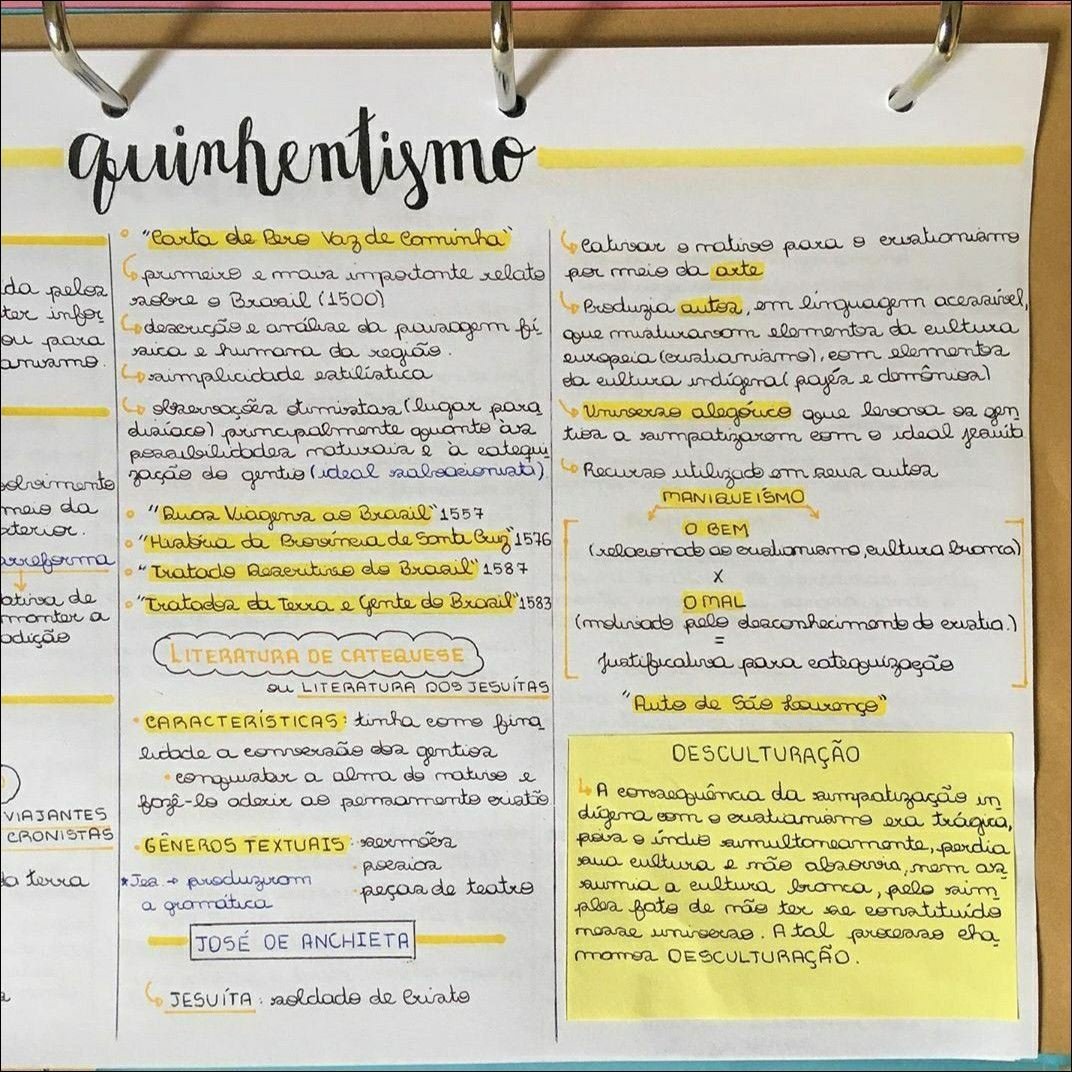 quinhentismo
da pelos
ter infor
ou para
anismo.
olvimento
meio da
xterior.
arreforma
ativa de
manter a
adição
VIAJANTES
CRONISTAS
da terra
"Carta de Pero Vaz de Caminha"
primeiro e mais importante relato
sobre o Brasil (1500)
descrição e análise da paisagem fí
sica e humana da região.
simplicidade estilística
observações otimistas (lugar para
disíaco) principalmente quanto às
possibilidades naturais e à catequi
zação do gentio (ideal salvacionista)
"Duas Viagens ao Brasil" 1557
"História da Província de Santa Cruz" 1576
"Tratado Descritivo do Brasil" 1587
"Tratados da Terra e Gente do Brasil" 1583
LITERATURA DE CATEQUESE
ou LITERATURA DOS JESUÍTAS
CARACTERÍSTICAS: tinha como fina
lidade a conversão dos gentios
• conquistar a alma do nativo e
fazê-lo aderir ao pensamento cristão
• GÊNEROS TEXTUAIS: • sermões
• poesias
• peças de teatro
*Jes. → produziram
a gramática
JOSÉ DE ANCHIETA
JESUÍTA: soldado de Cristo
Cativar o nativo para o cristianismo
por meio da arte
Produzia autos, em linguagem acessível,
que misturavam elementos da cultura
europeia (cristianismo), com elementos
da cultura indígena (pajés e demônios)
Universo alegórico que levava os gen
tios a simpatizarem com o ideal jesuíta
Recurso utilizado em seus autos
MANIQUEÍSMO
O BEM
(relacionado ao cristianismo, cultura branca)
X
O MAL
(motivado pelo desconhecimento do cristia.)
=
Justificativa para catequização
"Auto de São Lourenço"
DESCULTURAÇÃO
A consequência da simpatização in
dígena com o cristianismo era trágica,
pois o índio simultaneamente, perdia
sua cultura e não absorvia, nem as
sumia a cultura branca, pelo sim
ples fato de não ter se constituído
nesse universo. A tal processo cha
mamos DESCULTURAÇÃO.